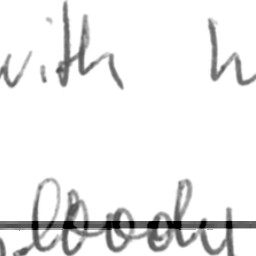 with h
bloody